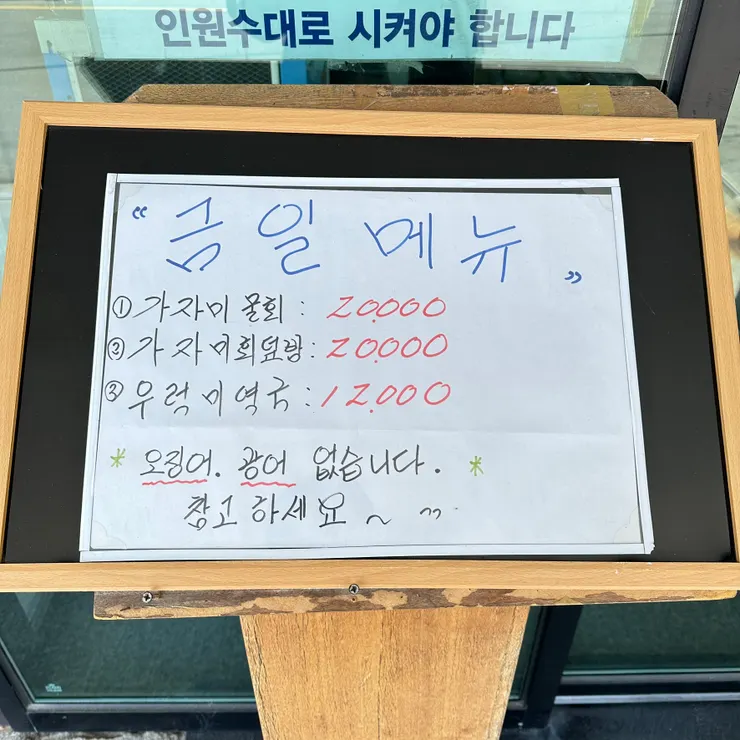 인원수대로 시켜야 합니다
“ 금일 메뉴 ”
① 가자미 물회 : 20.000
② 가자미회덮밥 : 20.000
③ 우럭미역국 : 12.000
* 오징어. 광어 없습니다. *
참고하세요 ~ ^^